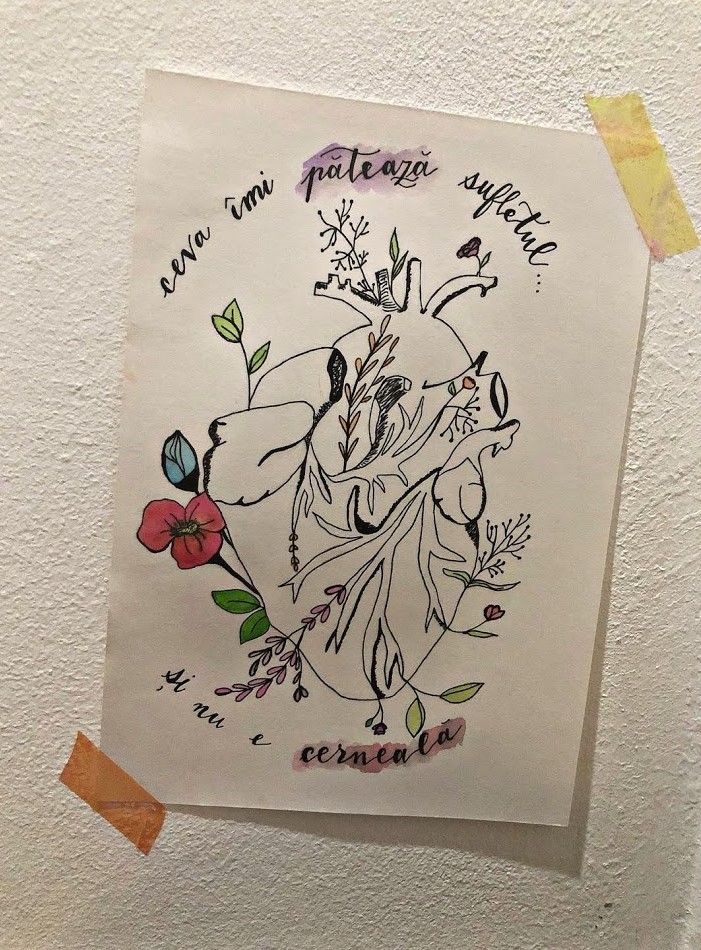 ceva îmi pătează sufletul...
și nu e cerneală